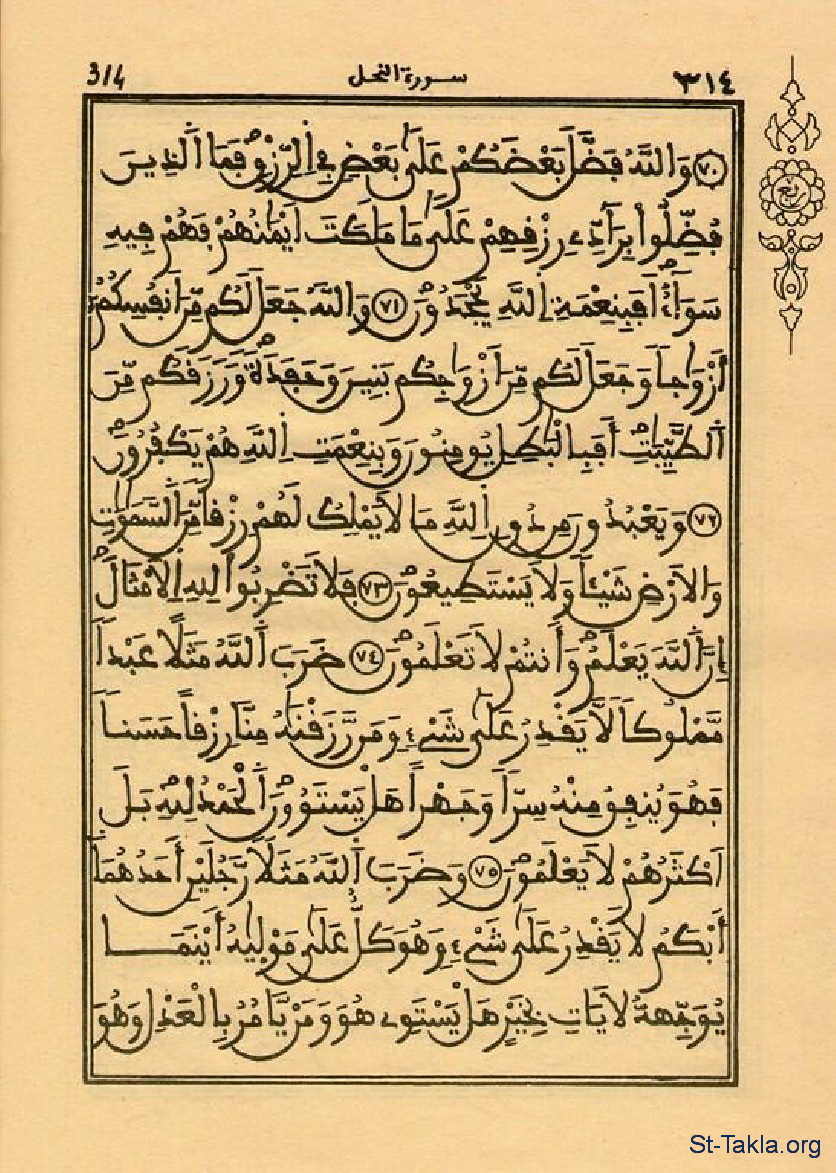 314 سورة النحل ٣١٤
ربع
٧٠ وَاللَّهُ فَضَّلَ بَعْضَكُمْ عَلَىٰ بَعْضٍ فِي اِلرِّزْقِ فَمَا اَلذِينَ
فُضِّلُواْ بِرَآدِّے رِزْقِهِمْ عَلَىٰ مَا مَلَكَتَ اَيْمَٰنُهُمْ فَهُمْ فِيهِ
سَوَآءٌ اَفَبِنِعْمَةِ اِللَّهِ يَجْحَدُونَ ٧١ وَاللَّهُ جَعَلَ لَكُم مِّنَ اَنفُسِكُمُ
أَزْوَٰجاً وَجَعَلَ لَكُم مِّنَ اَزْوَٰجِكُم بَنِينَ وَحَفَدَةً وَرَزَقَكُم مِّنَ
اَلطَّيِّبَٰتِ أَفَبِالْبَٰطِلِ يُومِنُونَ وَبِنِعْمَتِ اِللَّهِ هُمْ يَكْفُرُونَ
٧٢ وَيَعْبُدُونَ مِن دُونِ اِللَّهِ مَا لَا يَمْلِكُ لَهُمْ رِزْقاً مِّنَ اَلسَّمَٰوَٰتِ
وَالَارْضِ شَيْئاً وَلَا يَسْتَطِيعُونَ ٧٣ فَلَا تَضْرِبُواْ لِلهِ اِلَامْثَالَ
إِنَّ اَللَّهَ يَعْلَمُ وَأَنتُمْ لَا تَعْلَمُونَ ٧٤ ضَرَبَ اَللَّهُ مَثَلًا عَبْداً
مَّمْلُوكاً لَّا يَقْدِرُ عَلَىٰ شَےْءٍ وَمَن رَّزَقْنَٰهُ مِنَّا رِزْقاً حَسَناً
فَهُوَ يُنفِقُ مِنْهُ سِرّاً وَجَهْراً هَلْ يَسْتَوُونَ اَلْحَمْدُ لِلهِ بَلَ
اَكْثَرُهُمْ لَا يَعْلَمُونَ ٧٥ وَضَرَبَ اَللَّهُ مَثَلًا رَّجُلَيْنِ أَحَدُهُمَا
أَبْكَمُ لَا يَقْدِرُ عَلَىٰ شَےْءٍ وَهُوَ كَلٌّ عَلَىٰ مَوْلَىٰهُ أَيْنَمَا
يُوَجِّههُّ لَا يَاتِ بِخَيْرٍ هَلْ يَسْتَوِے هُوَ وَمَنْ يَّامُرُ بِالْعَدْلِ وَهُوَ
St-Takla.org